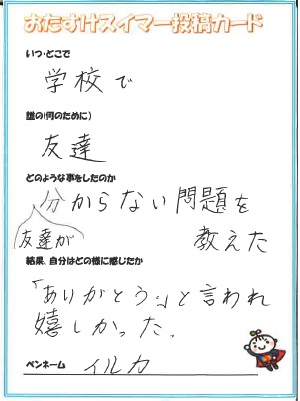 おたすけスイマー投稿カード
いつ・どこで
学校で
誰の(何のために)
友達
どのような事をしたのか
友達が
分からない問題を
教えた
結果、自分はどの様に感じたか
「ありがとう!」と言われ
嬉しかった。
ペンネーム イルカ